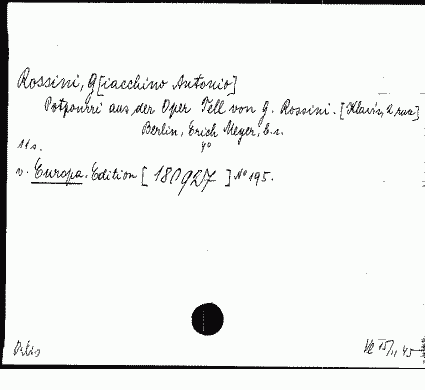 Rossini, G[iacchino Antonio]
Potpourri aus der Oper Tell von G. Rossini. [Klavír, 2 ruce]
Berlin, Erich Meyer, b.r.
4°
11 s.
v. Europa-Edition [180927] No 195.
Orbis
15/11 45